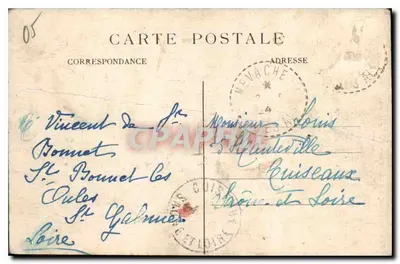 05
CARTE POSTALE
CORRESPONDANCE
ADRESSE
NEVACHE
Vincent de St
Bonnet
St Bonnet les
Oules
St Galmier
Loire
Monsieur Louis
Hauteville
Cuiseaux
Saône et Loire
CUISEAUX
SAONE ET LOIRE